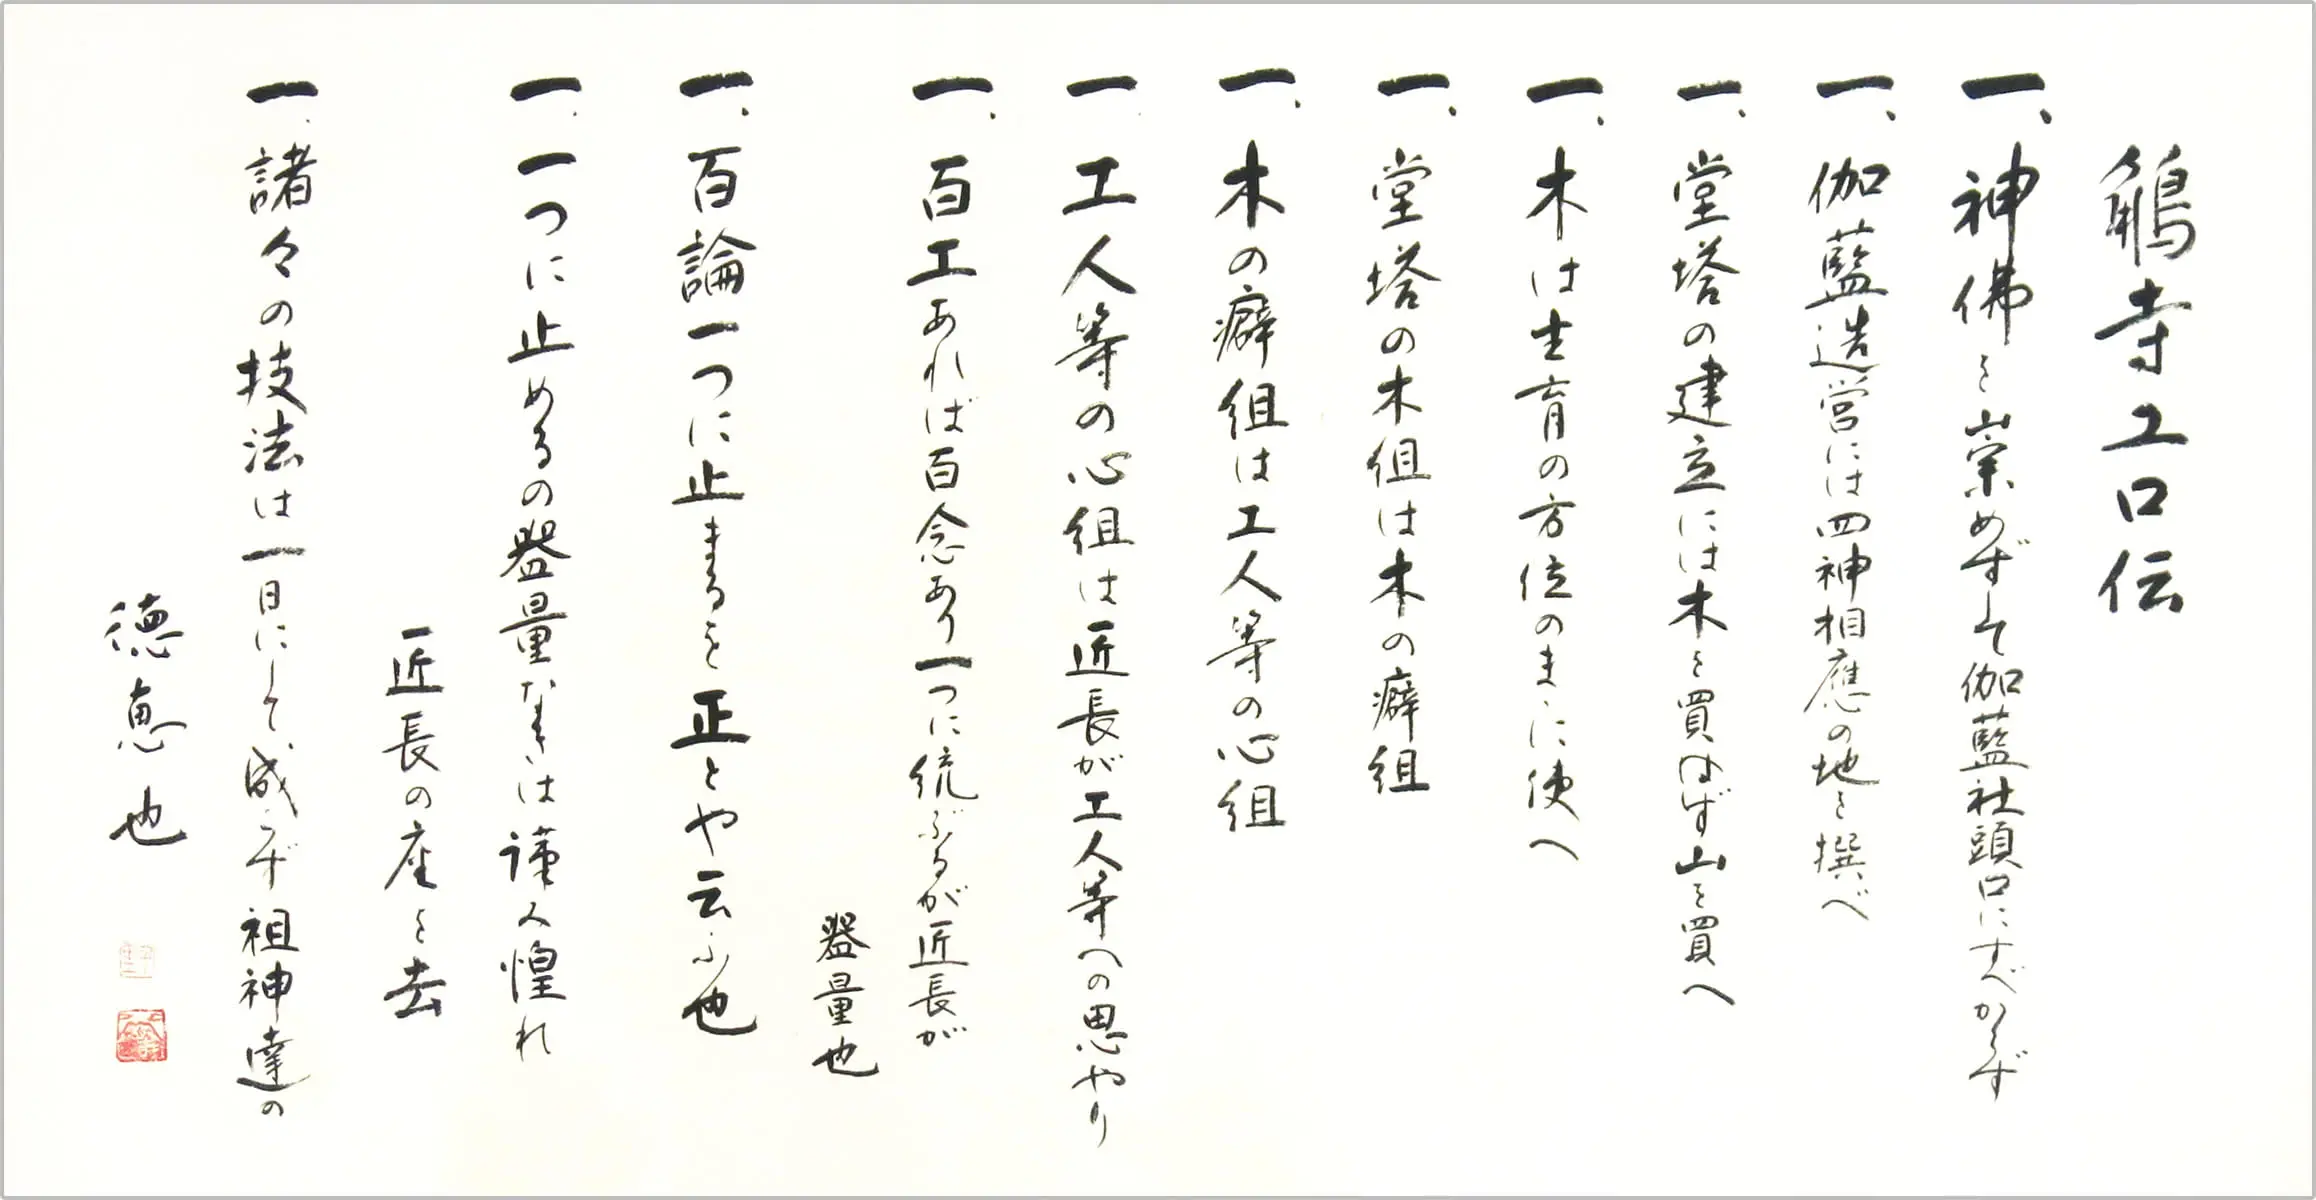 鵤寺工口伝
一、神佛を崇めずして伽藍社頭口にすべからず
一、伽藍造営には四神相應の地を撰べ
一、堂塔の建立には木を買はず山を買へ
一、木は生育の方位のまゝに使へ
一、堂塔の木組は木の癖組
一、木の癖組は工人等の心組
一、工人等の心組は匠長が工人等への思やり
一、百工あれば百念あり一つに統ぶるが匠長が
器量也
一、百論一つに止まるを正とや云ふ也
一、一つに止めるの器量なきは謹み惶れ
匠長の座を去
一、諸々の技法は一日にして成らず祖神達の
徳恵也